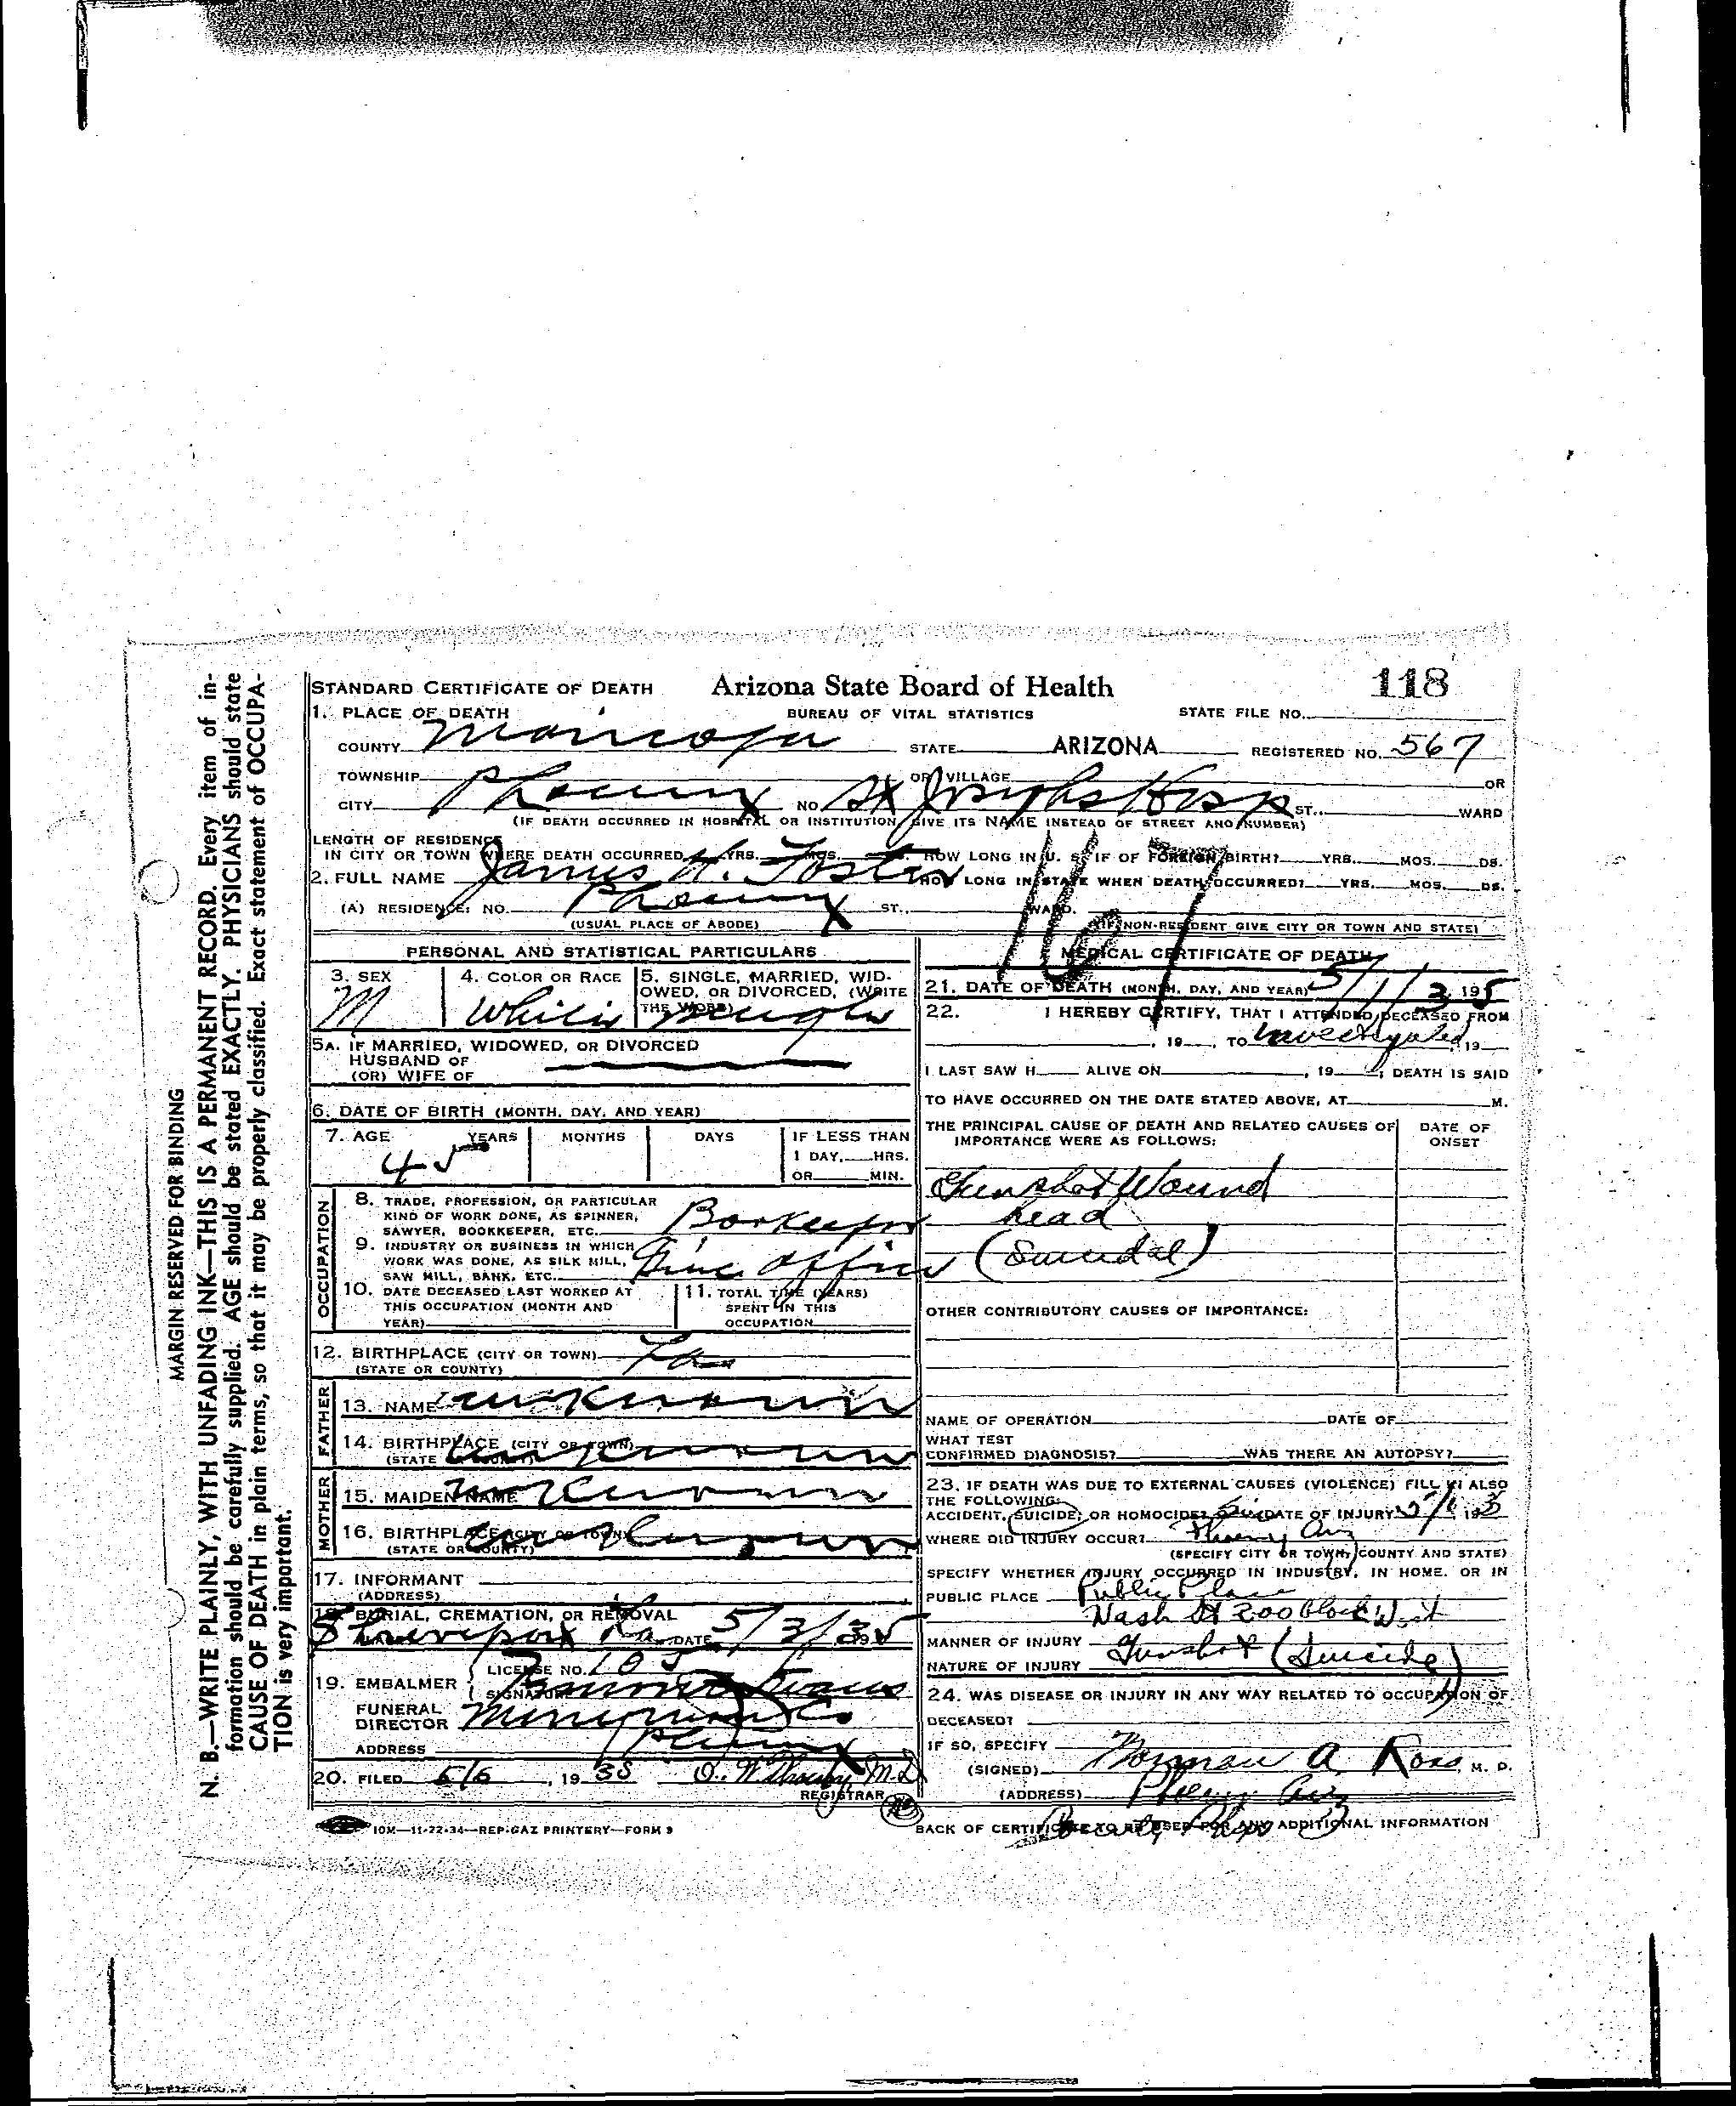 MARGIN RESERVED FOR BINDING
N. B.—WRITE PLAINLY, WITH UNFADING INK—THIS IS A PERMANENT RECORD. Every item of in-
formation should be carefully supplied. AGE should be stated EXACTLY. PHYSICIANS should state
CAUSE OF DEATH in plain terms, so that it may be properly classified. Exact statement of OCCUPA-
TION is very important.
STANDARD CERTIFICATE OF DEATH Arizona State Board of Health 118
1. PLACE OF DEATH BUREAU OF VITAL STATISTICS STATE FILE NO.
COUNTY Maricopa STATE ARIZONA REGISTERED NO. 567
TOWNSHIP OR VILLAGE OR
CITY Phoenix NO. St Josephs Hosp ST., WARD
(IF DEATH OCCURRED IN HOSPITAL OR INSTITUTION, GIVE ITS NAME INSTEAD OF STREET AND NUMBER)
LENGTH OF RESIDENCE
IN CITY OR TOWN WHERE DEATH OCCURRED YRS. MOS. HOW LONG IN U. S. IF OF FOREIGN BIRTH? YRS. MOS. DS.
2. FULL NAME James H. Foster HOW LONG IN STATE WHEN DEATH OCCURRED? YRS. MOS. DS.
(A) RESIDENCE: NO. Phoenix ST., WARD.
(USUAL PLACE OF ABODE) (IF NON-RESIDENT GIVE CITY OR TOWN AND STATE)
PERSONAL AND STATISTICAL PARTICULARS
3. SEX M
4. COLOR OR RACE White
5. SINGLE, MARRIED, WID-
OWED, OR DIVORCED, (WRITE
THE WORD) Single
5A. IF MARRIED, WIDOWED, OR DIVORCED
HUSBAND OF
(OR) WIFE OF
6. DATE OF BIRTH (MONTH, DAY, AND YEAR)
7. AGE YEARS MONTHS DAYS IF LESS THAN
45 1 DAY, HRS.
OR MIN.
OCCUPATION
8. TRADE, PROFESSION, OR PARTICULAR
KIND OF WORK DONE, AS SPINNER,
SAWYER, BOOKKEEPER, ETC. Bookeeper
9. INDUSTRY OR BUSINESS IN WHICH
WORK WAS DONE, AS SILK MILL,
SAW MILL, BANK, ETC. Office
10. DATE DECEASED LAST WORKED AT
THIS OCCUPATION (MONTH AND
YEAR)
11. TOTAL TIME (YEARS)
SPENT IN THIS
OCCUPATION
12. BIRTHPLACE (CITY OR TOWN) La
(STATE OR COUNTY)
FATHER
13. NAME unknown
14. BIRTHPLACE (CITY OR TOWN) unknown
(STATE OR COUNTY)
MOTHER
15. MAIDEN NAME unknown
16. BIRTHPLACE (CITY OR TOWN) unknown
(STATE OR COUNTY)
17. INFORMANT
(ADDRESS)
18. BURIAL, CREMATION, OR REMOVAL
Shreveport La DATE 5/3/35
19. EMBALMER LICENSE NO. 105
SIGNATURE Evans
FUNERAL
DIRECTOR
ADDRESS Phoenix
20. FILED 5/6, 1935 M.D.
REGISTRAR
10M—11-22-34—REP-GAZ PRINTERY—FORM 9
MEDICAL CERTIFICATE OF DEATH
21. DATE OF DEATH (MONTH, DAY, AND YEAR) 5/1/3 195
22. I HEREBY CERTIFY, THAT I ATTENDED DECEASED FROM
, 19 , TO Investigated, 19
I LAST SAW H ALIVE ON , 19 ; DEATH IS SAID
TO HAVE OCCURRED ON THE DATE STATED ABOVE, AT M.
THE PRINCIPAL CAUSE OF DEATH AND RELATED CAUSES OF
IMPORTANCE WERE AS FOLLOWS:
DATE OF
ONSET
Gunshot Wound
head
(Suicidal)
OTHER CONTRIBUTORY CAUSES OF IMPORTANCE:
NAME OF OPERATION DATE OF
WHAT TEST
CONFIRMED DIAGNOSIS? WAS THERE AN AUTOPSY?
23. IF DEATH WAS DUE TO EXTERNAL CAUSES (VIOLENCE) FILL IN ALSO
THE FOLLOWING:
ACCIDENT, SUICIDE, OR HOMICIDE? DATE OF INJURY 5/1 193
WHERE DID INJURY OCCUR? Phoenix Ariz
(SPECIFY CITY OR TOWN, COUNTY AND STATE)
SPECIFY WHETHER INJURY OCCURRED IN INDUSTRY, IN HOME, OR IN
PUBLIC PLACE Public Place
Wash St 200 Block West
MANNER OF INJURY Gunshot (Suicide)
NATURE OF INJURY
24. WAS DISEASE OR INJURY IN ANY WAY RELATED TO OCCUPATION OF
DECEASED?
IF SO, SPECIFY
(SIGNED) Norman A. Ross M. D.
(ADDRESS) Phoenix Ariz
BACK OF CERTIFICATE TO BE USED FOR ANY ADDITIONAL INFORMATION